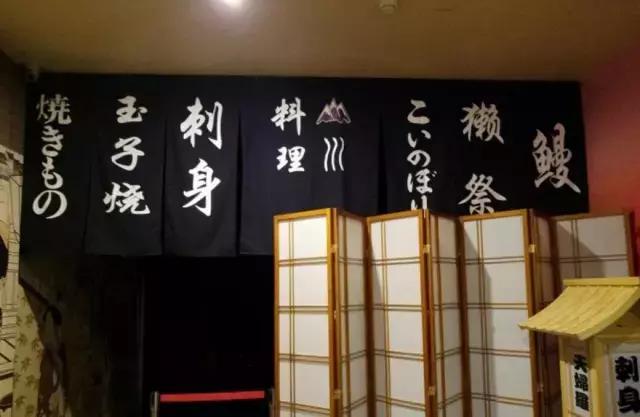 鰻
獺祭
こいのぼり
料理
刺身
玉子焼
焼きもの
刺身
天婦羅